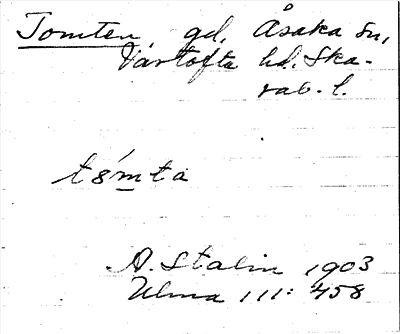 Tomten gd, Åsaka sn,
Vartofta hd. Ska-
rab. l.
A. Stalin 1903
Ulma 111: 458